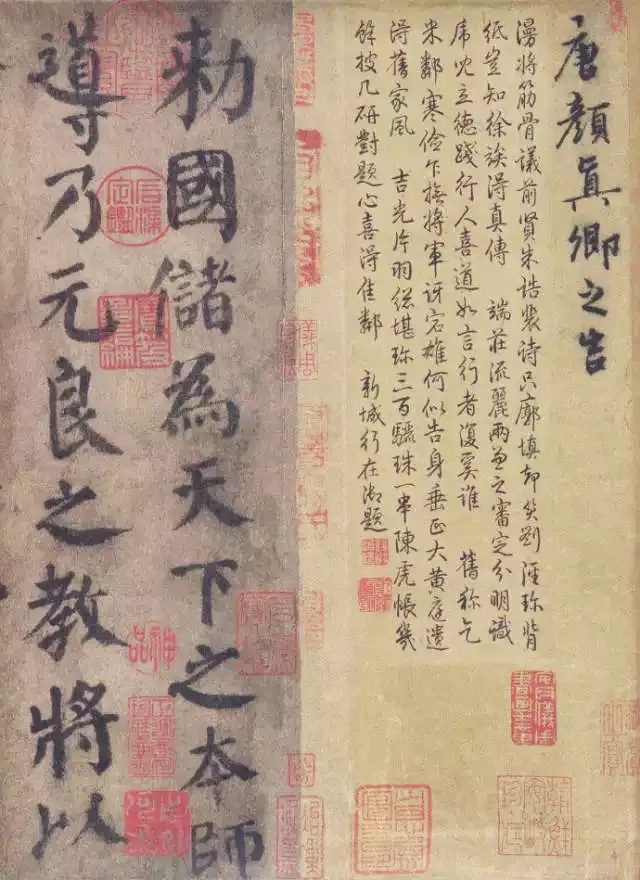 唐顏真卿之告
漫將筋骨議前賢朱誥裴詩只廓填却笑劉涇珍背
紙豈知徐誒得真傳 端莊流麗兩兼之審定分明識
立德踐行人喜道如言行者復奚誰 舊称乞
米鄰寒俭乍撫將軍訝宕雄何似告身垂正大黄庭遺
得舊家風 吉光片羽総堪珍三百驪珠一串陳虎帳幾
餘披几研對題心喜得佳鄰 新城行在御題
勅國儲為天下之本師
導乃元良之教將以
神品